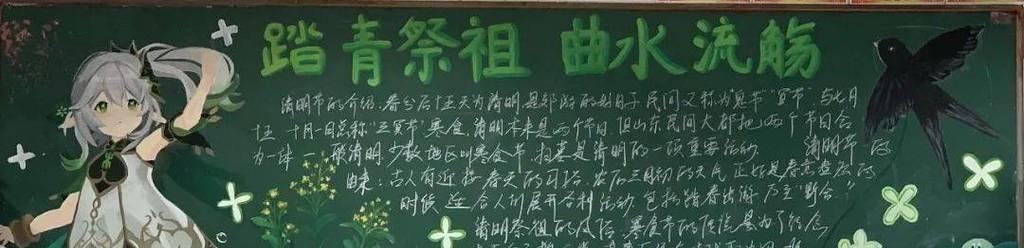 踏青祭祖 曲水流觞
清明节的介绍:春分后十五天为清明,是郊游的好日子,民间又称为"鬼节""冥节",与七月
十五、十月一日总称"三冥节"寒食、清明本来是两个节日,但山东民间大都把两个节日合
为一体,一般清明少数地区叫寒食节,扫墓是清明的一项重要活动 清明节的
由来:古人有迎接春天的习俗,农历三月初的天气正好是春意盎然的
时候,适合人们展开各种活动,包括踏春出游,产生"野合"
清明祭祖的风俗,寒食节的传说是为了纪念